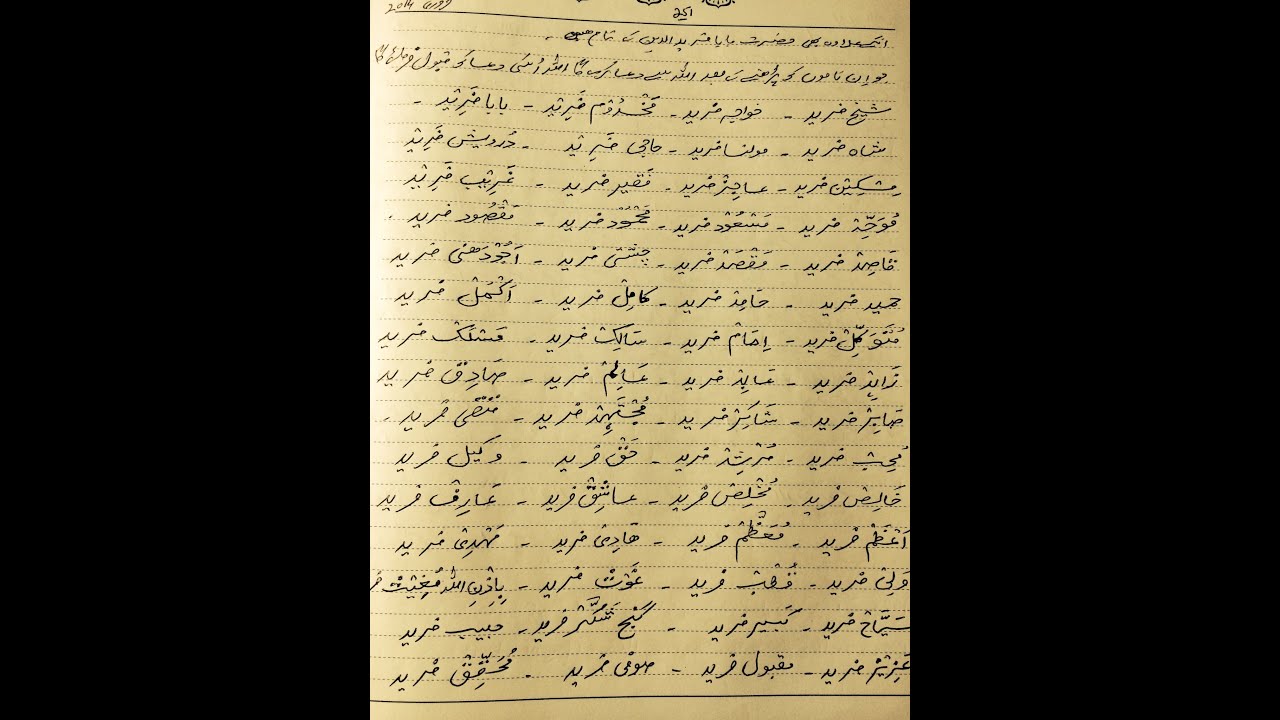 فروری 2014
انکے علاوہ بھی حضرت بابا فرید الدین کے نام ہیں ۔
جو ان ناموں کو پڑھنے کے بعد اللہ سے دعا کرے گا اللہ اُسکی دعا کو قبول فرمائے گا
شیخ فرید - خواجہ فرید - مَخْدُوْم فَرِیْد - بابا فَرِیْد -
شاہ فرید - مولنا فرید - حاجی فَرِیْد - دُرویش فَرِیْد
مِسْکِیْن فرید - عاجِزْ فرید - فَقِیر فرید - غَرِیْب فَرِیْد
مُوَحِّدْ فرید - مَسْعُوْد فرید - مَحْمُوْد فرید - مَقْصُود فرید -
قَاصِدْ فرید - مَقْصَدْ فرید - چِشْتی فرید - اَجُوْدَھنی فرید
حمید فرید - حَامِدْ فرید - کامِلْ فرید - اَکْمَلْ فرید
مُتَوَکِّلْ فرید - اِمَامْ فرید - سَالِکْ فرید - مَسْلَکْ فرید
زَاہِدْ فرید - عَابِدْ فرید - عَالِمْ فرید - صَادِقْ فرید
صَابِرْ فرید - شَاکِرْ فرید - مُجْتَہِدْ فرید - فرید -
مُحِبْ فرید - مُرْشِدْ فرید - حَقْ فرید - وکیل فرید
خَالِصْ فرید - مُخْلِصْ فرید - عاشِقْ فرید - عَارِفْ فرید
اَعْظَمْ فرید - مُعَظَّمْ فرید - ھَادِیْ فرید - مَہْدِیْ فرید
وَلِیْ فرید - قُطْبْ فرید - غَوْثْ فرید - بِاِذْنِ اللّٰہ مُغِیْثْ
سَیَّاحْ فرید - کَبِیر فرید - گَنْجِ شَکَّرْ فرید - حبیب فرید
عَزِیْزْ فرید - مقبول فرید - صوفی فرید - مُحَقِّقْ فرید